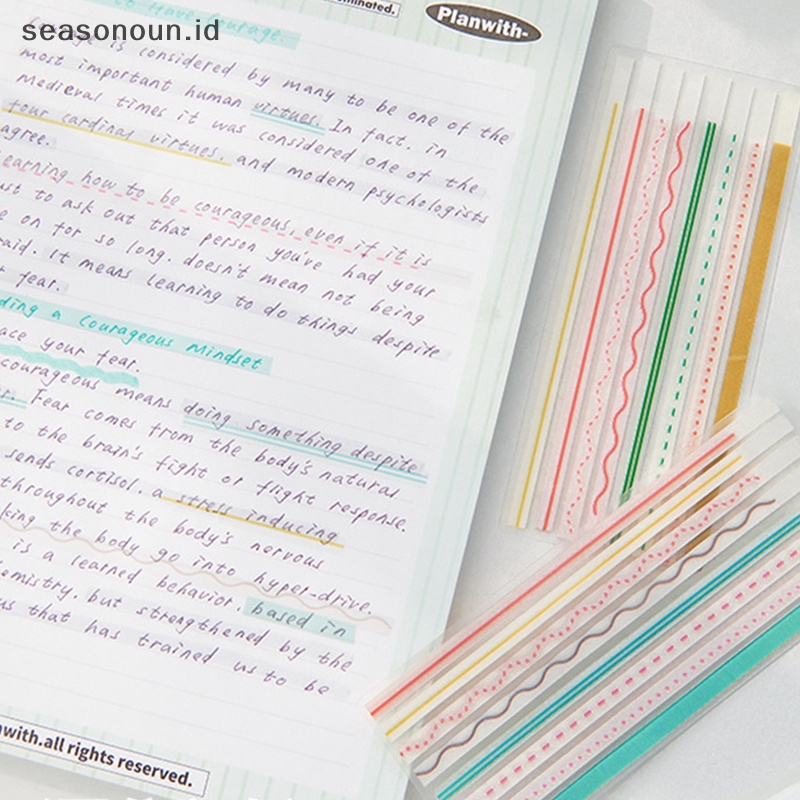 seasonoun.id
nated.
Planwith-
to Have Courage.
is considered by many to be one of the
most important human virtues. In fact, in
medieval times it was considered one of the
four cardinal virtues, and modern psychologists
agree.
earning how to be courageous, even if it is
ust to ask out that person you've had your
e on for so long, doesn't mean not being
raid. It means learning to do things despite
r fear.
ding a Courageous Mindset
ace your fear.
courageous means doing something despite
r. Fear comes from the body's natural
to the brain's fight or flight response.
sends cortisol, a stress inducing
throughout the body's nervous
king the body go into hyper-drive.
is a learned behavior, based in
emistry, but strengthened by the
us that has trained us to be
nwith.all rights reserved.